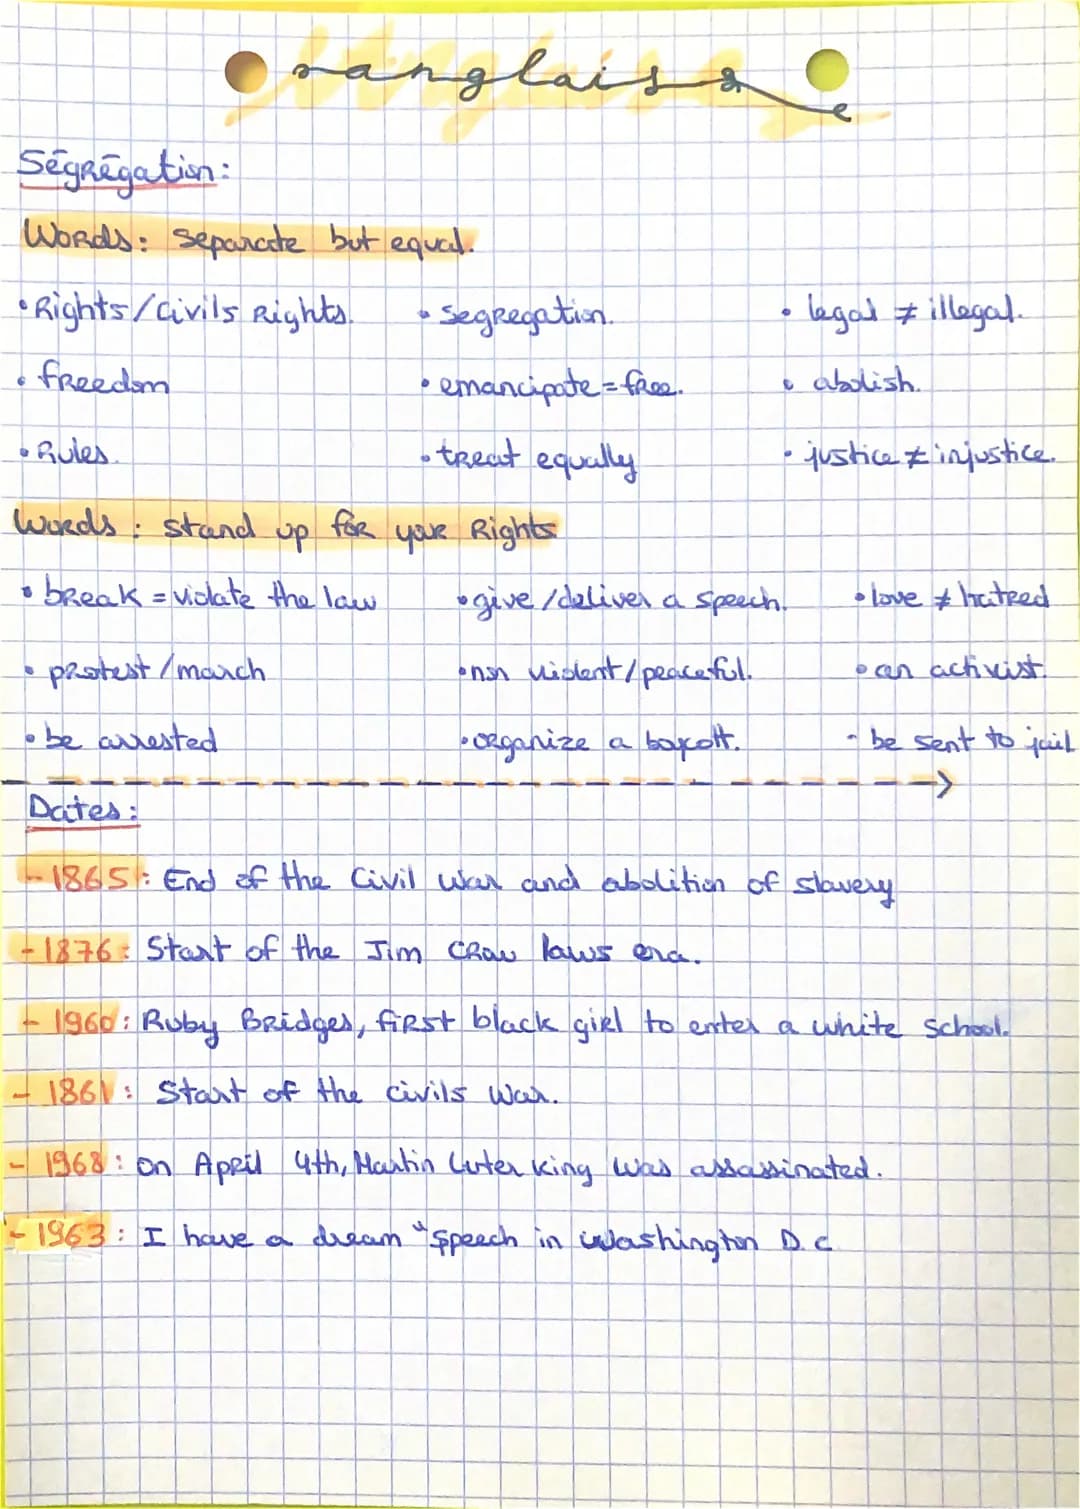 anglais
Ségrégation:
Words: separate but equal.
• Rights/Civils Rights. • segregation. • legal ≠ illegal.
• freedom • emancipate = free. • abolish.
• Rules. • treat equally • justice ≠ injustice.
Words: stand up for your Rights
• break = violate the law • give/deliver a speech. • love ≠ hatred
• protest/march • non violent/peaceful. • an activist.
• be arrested • organize a boycott. - be sent to jail
Dates:
- 1865: End of the Civil War and abolition of slavery
- 1876: Start of the Jim Crow laws era.
- 1960: Ruby Bridges, first black girl to enter a white school.
- 1861: Start of the civils War.
- 1968: on April 4th, Martin Luter king was assassinated.
- 1963: I have a dream "speech in washington D.C